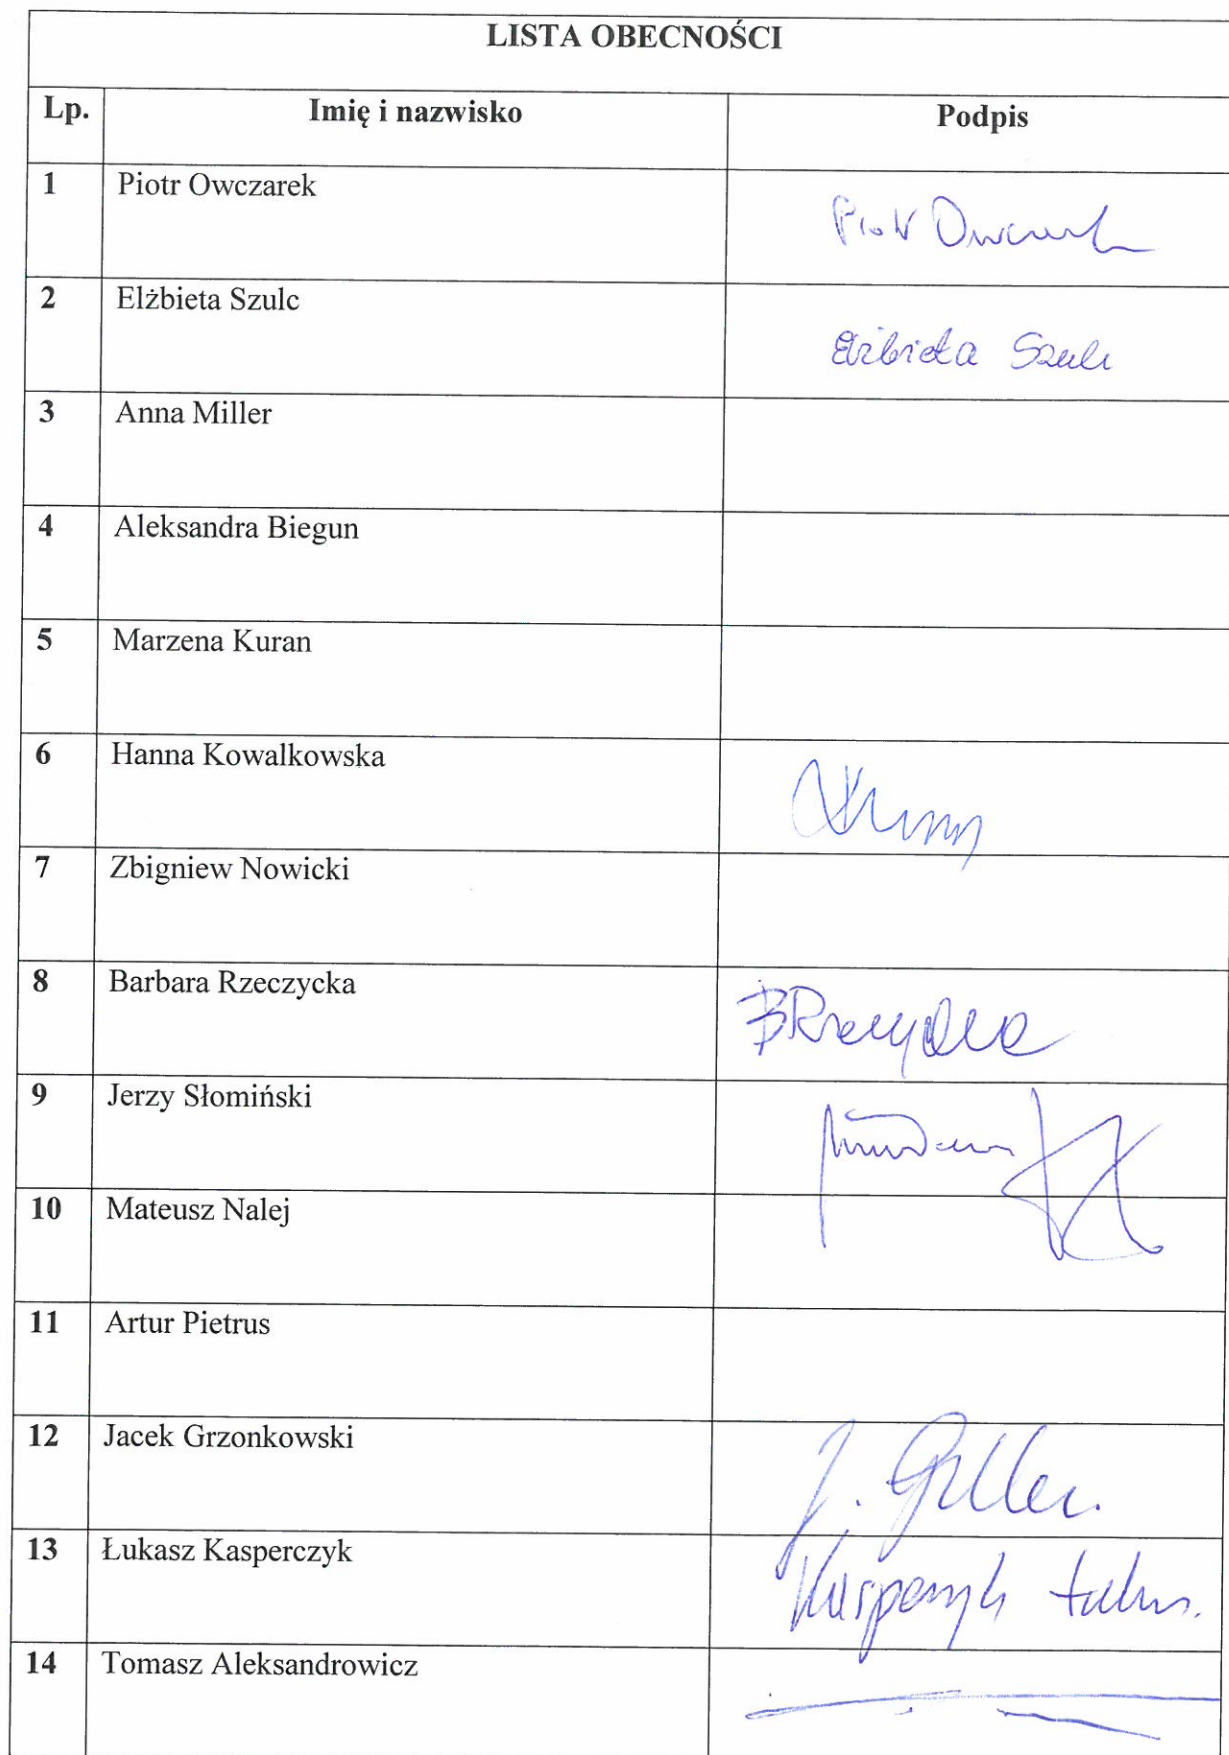 LISTA OBECNOŚCI
Lp. Imię i nazwisko Podpis
1 Piotr Owczarek
Piotr Owczarek
2 Elżbieta Szulc
Elżbieta Szulc
3 Anna Miller
4 Aleksandra Biegun
5 Marzena Kuran
6 Hanna Kowalkowska
7 Zbigniew Nowicki
8 Barbara Rzeczycka
BRzeczycka
9 Jerzy Słomiński
10 Mateusz Nalej
11 Artur Pietrus
12 Jacek Grzonkowski
13 Łukasz Kasperczyk
Kasperczyk
14 Tomasz Aleksandrowicz